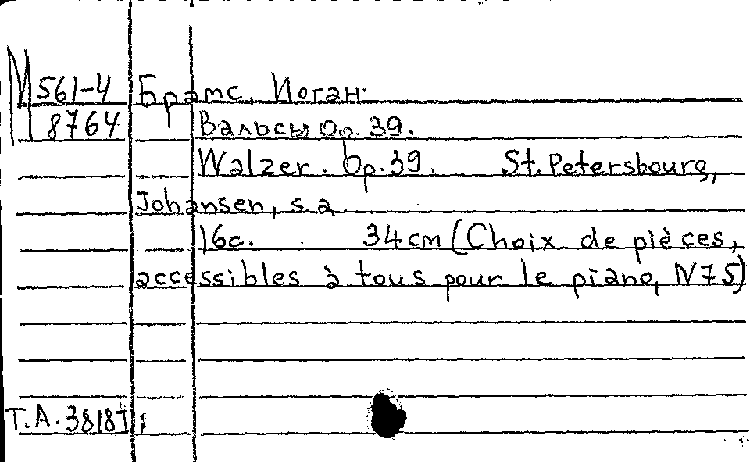 М 561-4 Брамс, Иоган.
8764 Вальсы Op. 39.
Walzer. Op. 39. St. Petersbourg,
Johansen, s.a.
16с. 34cm (Choix de pièces,
accessibles à tous pour le piano, N75)
T.A. 3818